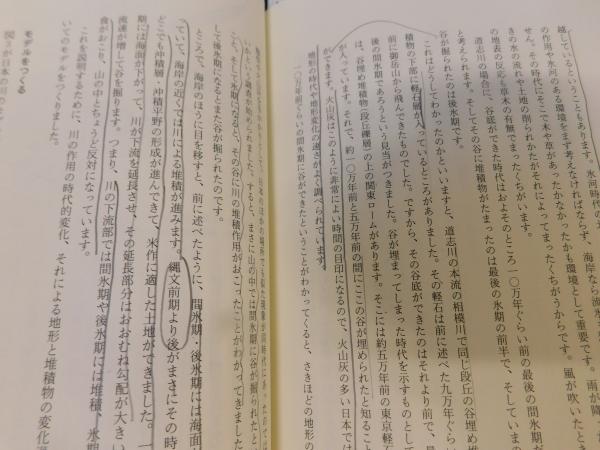 越しているということもあります。氷河時代の
の作用や氷河のある環境をまず考えなければならず、海岸なら流氷
せん。その時代にそこで木や草があったかなかったかも環境として重要です。雨が降
きの水の流れや土地の削られかたがそれによってまったくちがうからです。風が吹いたとき
の地表の反応も草木の有無でまったくちがいます。
道志川の場合に、谷底ができた時代はおよそのところ一〇万年ぐらい前の最後の間氷期だ
と考えられます。そしてその谷に堆積物がたまったのは最後の氷期の前半で、そしていまの
谷が掘られたのは後氷期です。
これはどうしてわかったのかといいますと、道志川の本流の相模川で同じ段丘の谷埋め堆
積物の下部に軽石層が入っているところがありました。その軽石は前に述べた九万年ぐらい
前に御岳山から飛んできたものでした。ですから、その谷底ができたのはそれより前で、最
後の間氷期であろうという見当がつきました。谷が埋まってしまった時代を示すものとして
は、谷埋め堆積物(段丘礫層)の上の関東ロームがあります。そこには約五万年前の東京軽石
が入っています。それで、約一〇万年前と五万年前の間にここの谷が埋められたと知ること
ができます。火山灰はこのように非常によい時間の目印になるので、火山灰の多い日本では
地形の時代や地形変化の速さがよく調べられています。
一〇万年前ぐらいの間氷期に谷ができたということがわかってくると、さきほどの地形の
すると、まさに山の中では間氷期に谷が掘られたと
こう、そして氷期になると、その谷に川の堆積作用がおこったことがわかってきました
して後氷期になるとまた谷が掘られたのです。
ところで、海岸のほうに目を移すと、前に述べたように、間氷期・後氷期には海面が
ていて、海岸の近くでは川による堆積が進みます。縄文前期より後がまさにその時
どこでも沖積層・沖積平野の形成が進んできて、米作に適した土地ができました。一
期には海面が下がって、川が下流を延長させ、その延長部分はおおむね勾配が大きい
流速が増して谷を掘ります。つまり、川の下流部では間氷期や後氷期には堆積、氷期
食がおこり、山の中とちょうど反対になっています。
これを説明するために、川の作用の時代的変化、それによる地形と堆積物の変化
いてのモデルをつくりました。
モデルをつくる